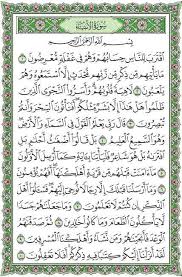 سُورَةُ الأَنبِيَاءِ
بِسْمِ ٱللَّهِ ٱلرَّحْمَٰنِ ٱلرَّحِيمِ
ٱقْتَرَبَ لِلنَّاسِ حِسَابُهُمْ وَهُمْ فِى غَفْلَةٍ مُّعْرِضُونَ ١
مَا يَأْتِيهِم مِّن ذِكْرٍ مِّن رَّبِّهِم مُّحْدَثٍ إِلَّا ٱسْتَمَعُوهُ وَهُمْ
يَلْعَبُونَ ٢ لَاهِيَةً قُلُوبُهُمْ وَأَسَرُّوا۟ ٱلنَّجْوَى ٱلَّذِينَ
ظَلَمُوا۟ هَلْ هَٰذَآ إِلَّا بَشَرٌ مِّثْلُكُمْ أَفَتَأْتُونَ ٱلسِّحْرَ وَأَنتُمْ
تُبْصِرُونَ ٣ قَالَ رَبِّى يَعْلَمُ ٱلْقَوْلَ فِى ٱلسَّمَآءِ وَٱلْأَرْضِ
وَهُوَ ٱلسَّمِيعُ ٱلْعَلِيمُ ٤ بَلْ قَالُوٓا۟ أَضْغَٰثُ أَحْلَٰمٍۭ بَلِ
ٱفْتَرَىٰهُ بَلْ هُوَ شَاعِرٌ فَلْيَأْتِنَا بِـَٔايَةٍ كَمَآ أُرْسِلَ ٱلْأَوَّلُونَ
٥ مَآ ءَامَنَتْ قَبْلَهُم مِّن قَرْيَةٍ أَهْلَكْنَٰهَآ أَفَهُمْ يُؤْمِنُونَ
٦ وَمَآ أَرْسَلْنَا قَبْلَكَ إِلَّا رِجَالًا نُّوحِىٓ إِلَيْهِمْ فَسْـَٔلُوٓا۟
أَهْلَ ٱلذِّكْرِ إِن كُنتُمْ لَا تَعْلَمُونَ ٧ وَمَا جَعَلْنَٰهُمْ جَسَدًا
لَّا يَأْكُلُونَ ٱلطَّعَامَ وَمَا كَانُوا۟ خَٰلِدِينَ ٨ ثُمَّ صَدَقْنَٰهُمُ
ٱلْوَعْدَ فَأَنجَيْنَٰهُمْ وَمَن نَّشَآءُ وَأَهْلَكْنَا ٱلْمُسْرِفِينَ ٩
لَقَدْ أَنزَلْنَآ إِلَيْكُمْ كِتَٰبًا فِيهِ ذِكْرُكُمْ أَفَلَا تَعْقِلُونَ ١٠